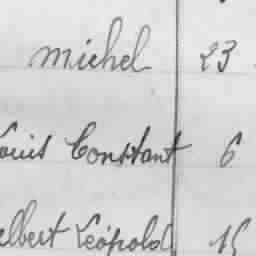 Michel 23
Louis Constant 6
Albert Léopold 15